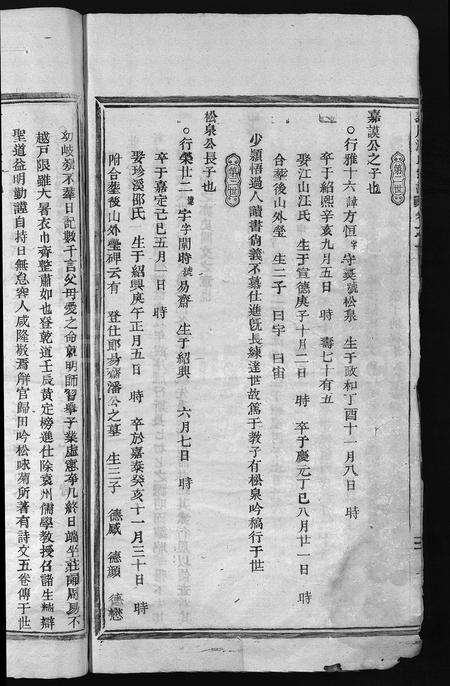 第二世
嘉謨公之子也
○行雅十六 諱方恒 字守奕 號松泉 生于政和丁酉十一月八日 時
卒于紹熙辛亥九月五日 時 壽七十有五
娶江山江氏 生于宣德庚子十月二日 時 卒于慶元丁巳八月廿一日 時
合塟後山外塋 生二子 一曰宇 曰宙
少穎悟過人讀書尚義不慕仕進旣長練達世故篤于教子有松泉吟稿行于世
第三世
松泉公長子也
○行榮廿二 諱宇 字開時 號易齋 生于紹興 六月七日 時
卒于嘉定己巳五月一日 時
娶珍溪邵氏 生于紹興庚午正月五日 時 卒於嘉泰癸亥十一月三十日 時
附合塟後山外塋碑云有 登仕郎易齋潘公之墓 生三子 德威 德顔 德懋
幼岐嶷不羣日記數千言父母愛之命就明師習舉子業虛憲亭几終日端坐莊誦周易不
越戸限雖大暑衣巾齊整肅如也登乾道壬辰黄定榜進仕除袁州儒學教授召諸生辯
聖道益明勤謹自持日無怠容人咸隆敬焉觧官歸田吟松咏菊所著有詩文五卷傳于世